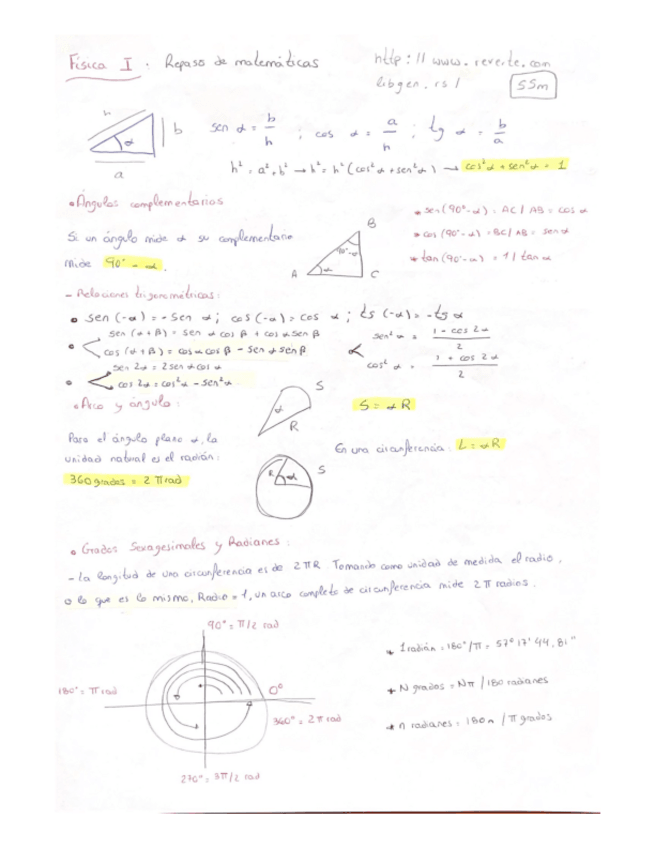 Física I . Repaso de matemáticas
http://www.reverte.com
libgen.rs/
55m
h
α
b
a
sen α = b/h ; cos α = a/h ; tg α = b/a
h² = a² + b² → h² = h² (cos²α + sen²α) → cos²α + sen²α = 1
• Ángulos complementarios
Si un ángulo mide α su complementario
mide 90° - α.
B
90°-α
A
α
C
* sen (90°-α) = AC/AB = cos α
* cos (90°-α) = BC/AB = sen α
* tan (90°-α) = 1/tan α
- Relaciones trigonométricas:
• sen (-α) = - sen α ; cos (-α) = cos α ; tg (-α) = - tg α
sen (α+β) = sen α cos β + cos α sen β
cos (α+β) = cos α cos β - sen α sen β
sen²α = 1 - cos 2α / 2
cos²α = 1 + cos 2α / 2
sen 2α = 2 sen α cos α
cos 2α = cos²α - sen²α
• Arco y ángulo:
α
S
R
S = αR
Para el ángulo plano α, la
unidad natural es el radián:
360 grados = 2π rad
En una circunferencia: L = αR
R
α
S
• Grados Sexagesimales y Radianes:
- La longitud de una circunferencia es de 2πR. Tomando como unidad de medida el radio,
o lo que es lo mismo, Radio = 1, un arco completo de circunferencia mide 2π radios.
90° = π/2 rad
180° = π rad
0°
360° = 2π rad
270° = 3π/2 rad
* 1 radián = 180°/π = 57° 17' 44,81"
* N grados = Nπ/180 radianes
* n radianes = 180n/π grados